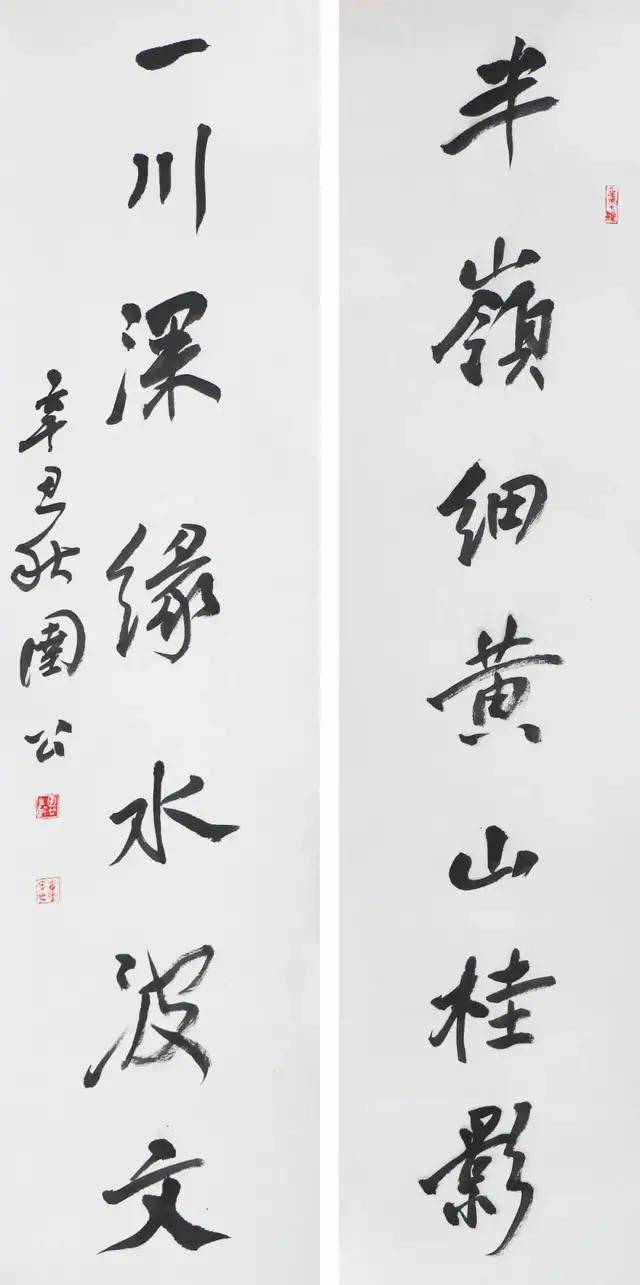 半嶺細黄山桂影
一川深緣水波文
辛丑秋圃公